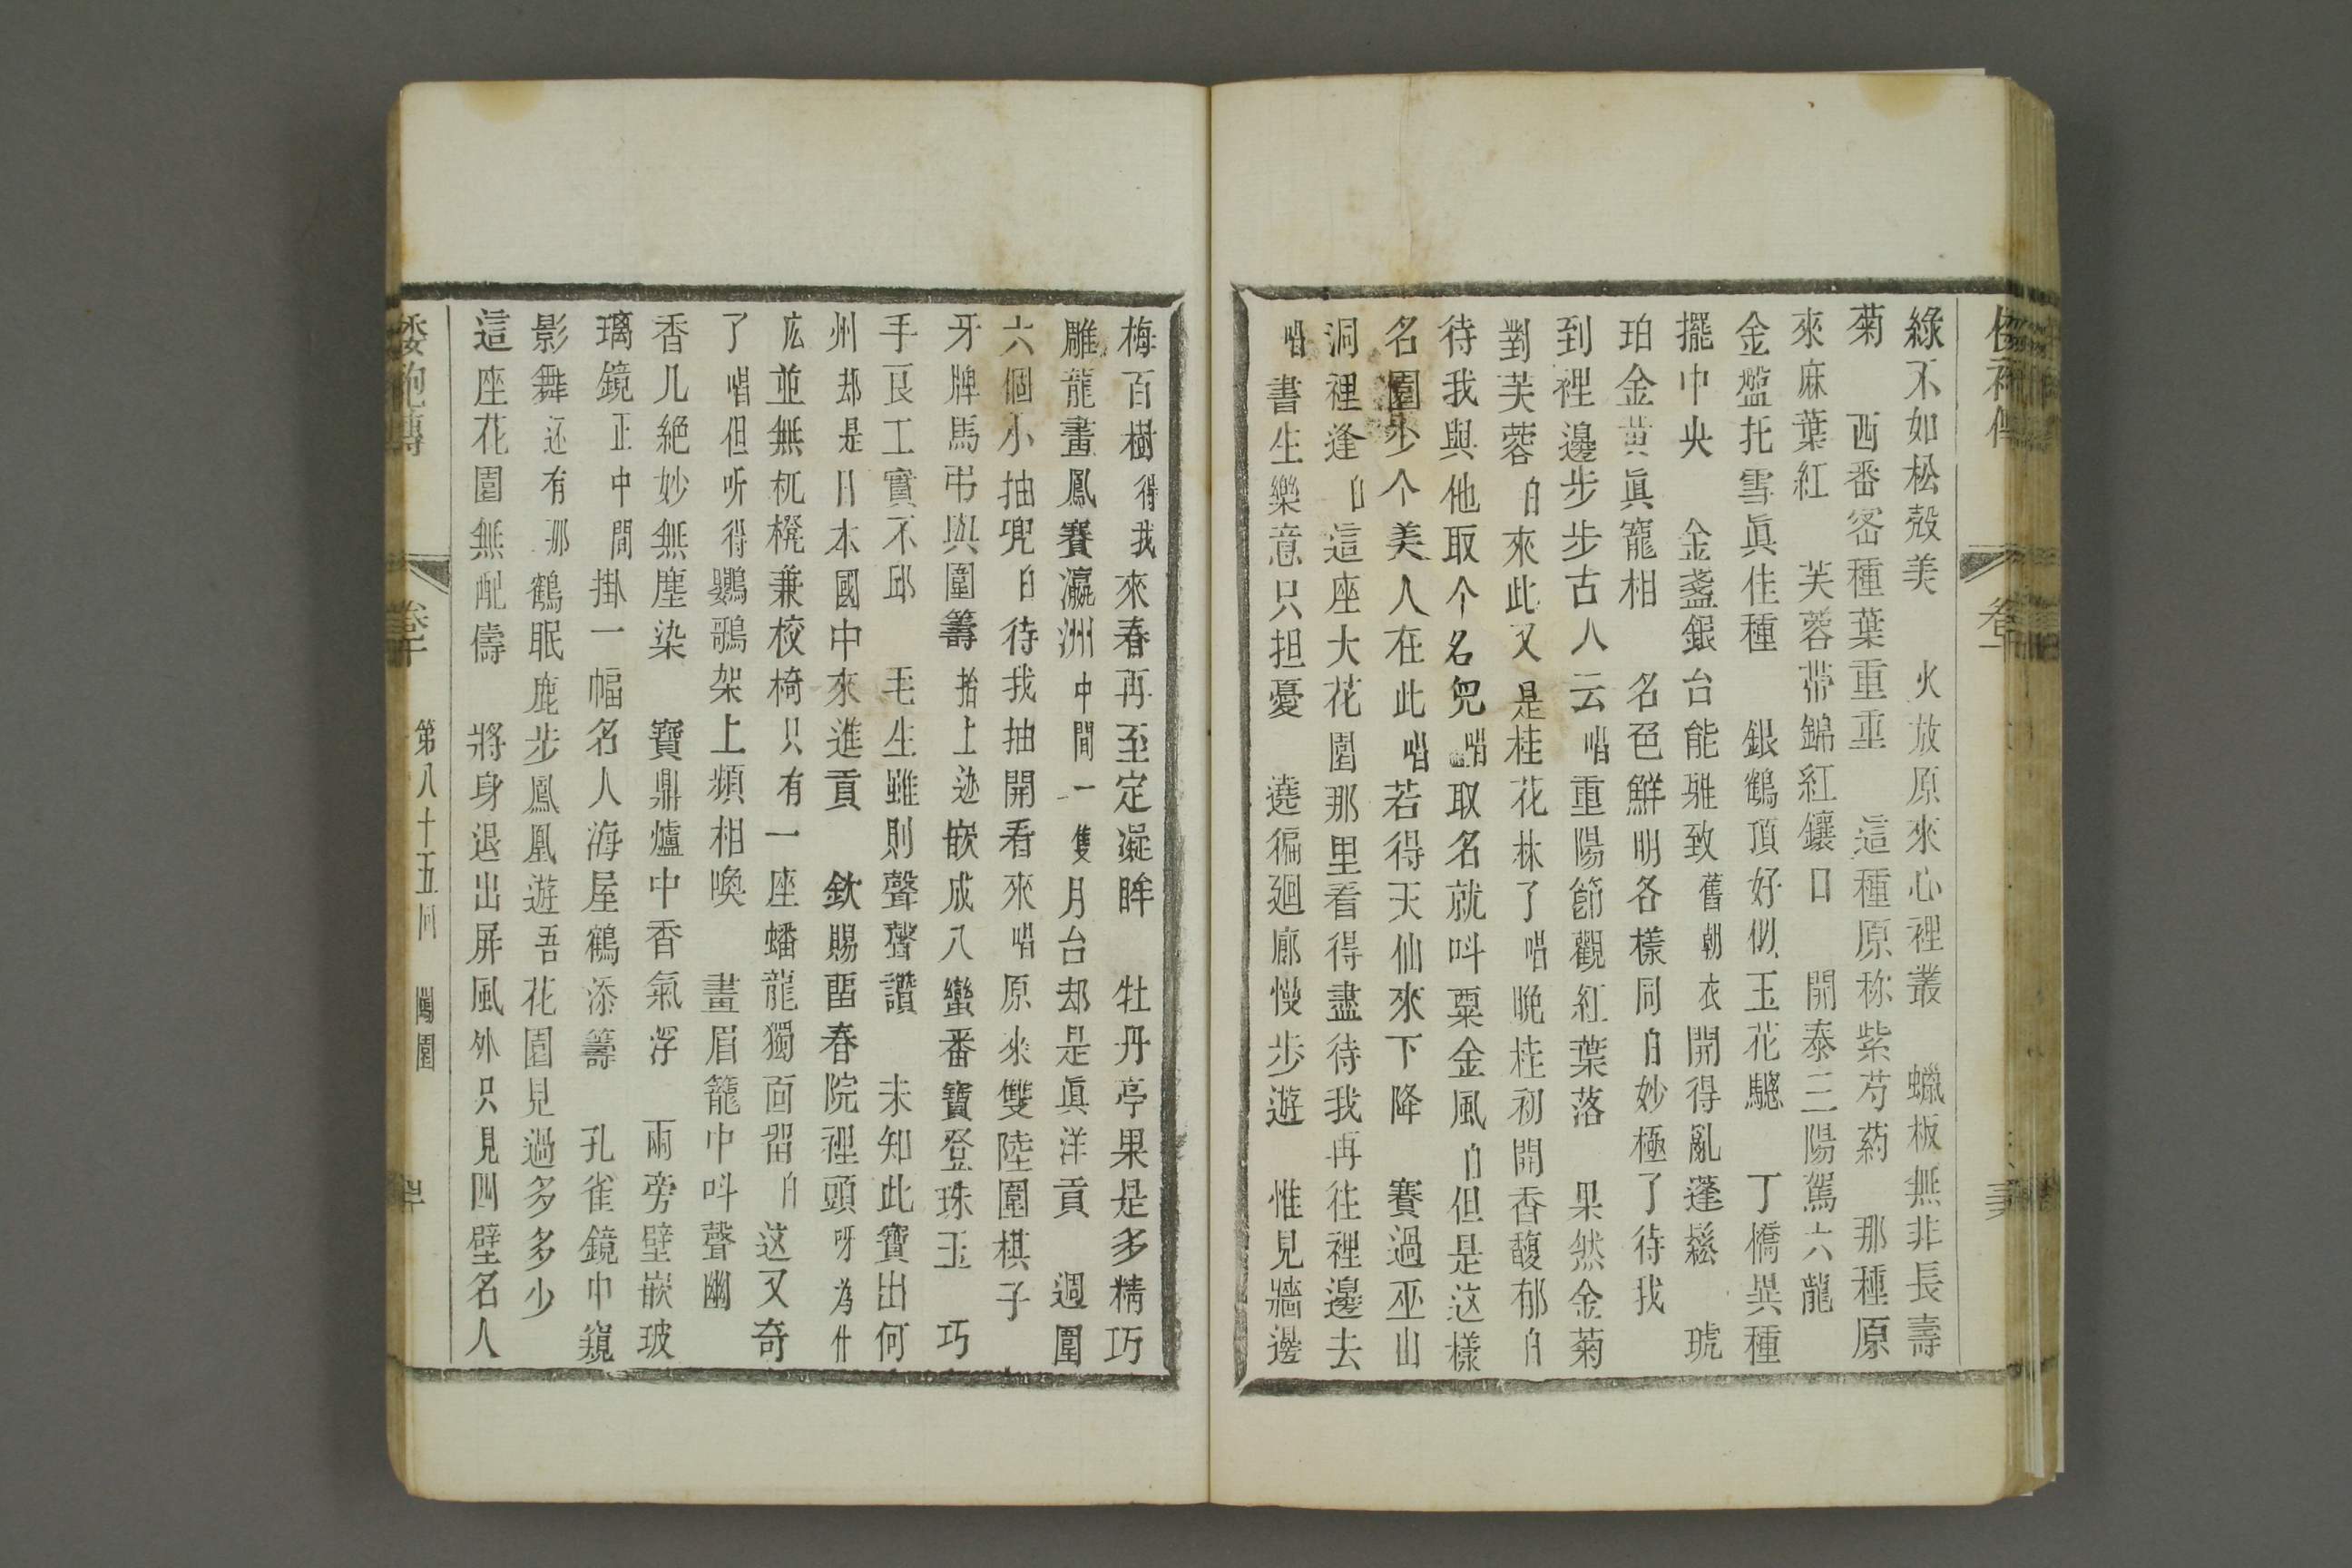 綠不如松殼美　火放原來心裡叢　蠟板無非長壽
菊　西番宻種葉重重　這種原称紫芍葯　那種原
來麻葉紅　芙蓉帶錦紅鑲口　開泰三陽駕六龍
金盤托雪眞佳種　銀鶴頂好似玉花驄　丁橋異種
擺中央　金盞銀台能雅致舊朝衣開得亂蓬鬆　琥
珀金黄眞寵相　名色鮮明各樣同白妙極了待我
到裡邊步步古人云唱重陽節觀紅葉落　果然金菊
對芙蓉白來此又是桂花林了唱晩桂初開香馥郁白
待我與他取个名兜唱取名就呌粟金風白但是这樣
名園少个美人在此唱若得天仙來下降　賽過巫山
洞裡逢白這座大花園那里看得盡待我再往裡邊去
唱書生樂意只担憂　遶徧廻廊慢步遊　惟見牆邊
梅百樹待我來春再至定凝眸　牡丹亭果是多精巧
雕龍畫鳳賽瀛洲中間一隻月台却是眞洋貢　週圍
六個小抽兜白待我抽開看來唱原來雙陸圍棋子
牙牌馬弔與圍籌抬上迹嵌成八蠻番寶登珠玉　巧
手良工實不邱　毛生雖則聲聲讚　未知此寶出何
州却是日本國中來進貢　欽賜畱春院裡頭呀為什
庅並無杌櫈兼校椅只有一座蟠龍獨面畱白这又奇
了唱但听得鸚鵡架上頻相喚　畫眉籠中呌聲幽
香几絕妙無塵染　寶鼎爐中香氣浮　兩旁壁嵌玻
璃鏡正中間掛一幅名人海屋鶴添籌　孔雀鏡巾窺
影舞还有那鶴眠鹿步鳳凰遊吾花園見過多多少
這座花園無配儔　將身退出屏風外只見四壁名人
倭袍傳　卷十　第八十五囘　闖園